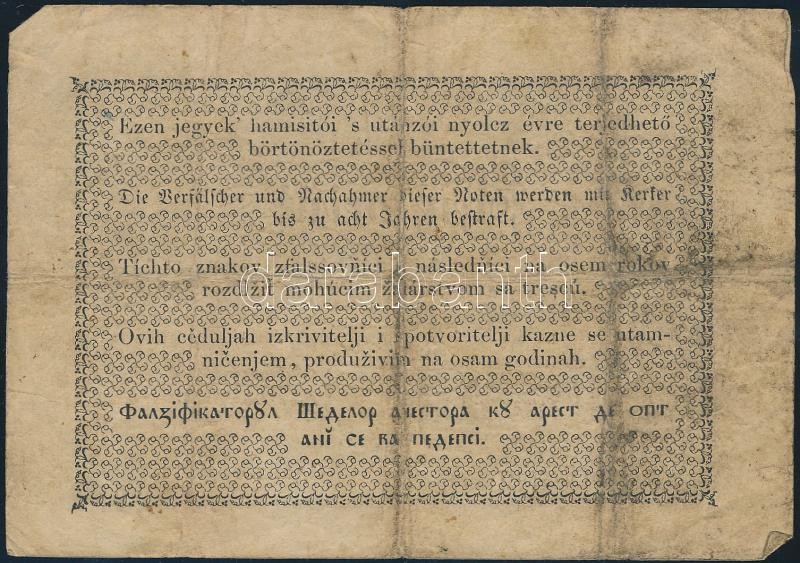 Ezen jegyek' hamisitói 's utánzói nyolcz évre terjedhető
börtönöztetéssel büntettetnek.
Die Verfälscher und Nachahmer dieser Noten werden mit Kerker
bis zu acht Jahren bestraft.
Tíchto znakov zfalssovňíci i následňíci na osem rokov
darabanth
rozdĺžiť mohúcim žalárstvom sa trescú.
Ovih cĕduljah izkrivitelji i potvoritelji kazne se utam-
ničenjem, produživim na osam godinah.
Фалзіфікаторꙋл Шеделор ачестора кꙋ арест де опт
анĭ се ва педепсі.